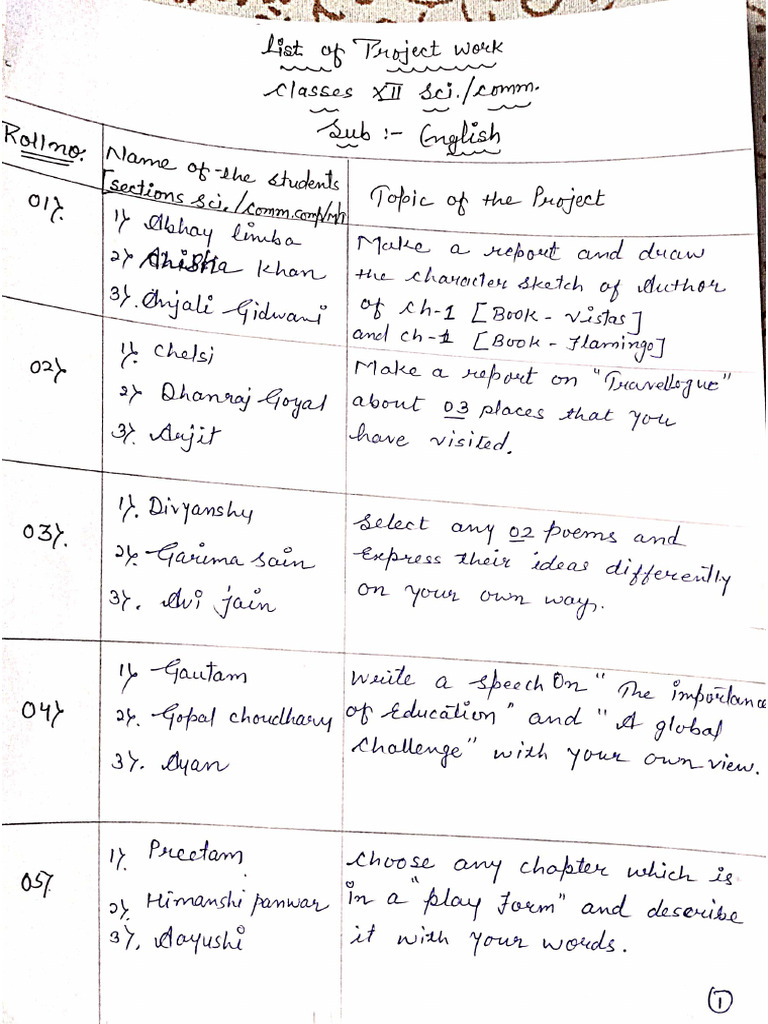 List of Project work
Classes XII Sci./comm.
Sub :- English
Roll no.
Name of the students
[sections sci./comm.
Topic of the Project
01).
1) Abhay limba
2) Anisha Khan
3). Anjali Gidwani
Make a report and draw
the character sketch of Author
of ch-1 [Book - Vistas]
and ch-1 [Book - Flamingo]
02).
1). Chelsi
2) Dhanraj Goyal
3). Arjit
Make a report on "Travellogue"
about 03 places that you
have visited.
03).
1). Divyanshy
2). Garima sain
3). Avi jain
Select any 02 poems and
Express their ideas differently
on your own way.
04).
1) Gautam
2). Gopal choudhary
3). Ayan
Write a speech On "The importance
of Education" and "A global
challenge" with your own view.
05).
1). Preetam
2). Himanshi panwar
3). Aayushi
Choose any chapter which is
in a "play Form" and describe
it with your words.
1